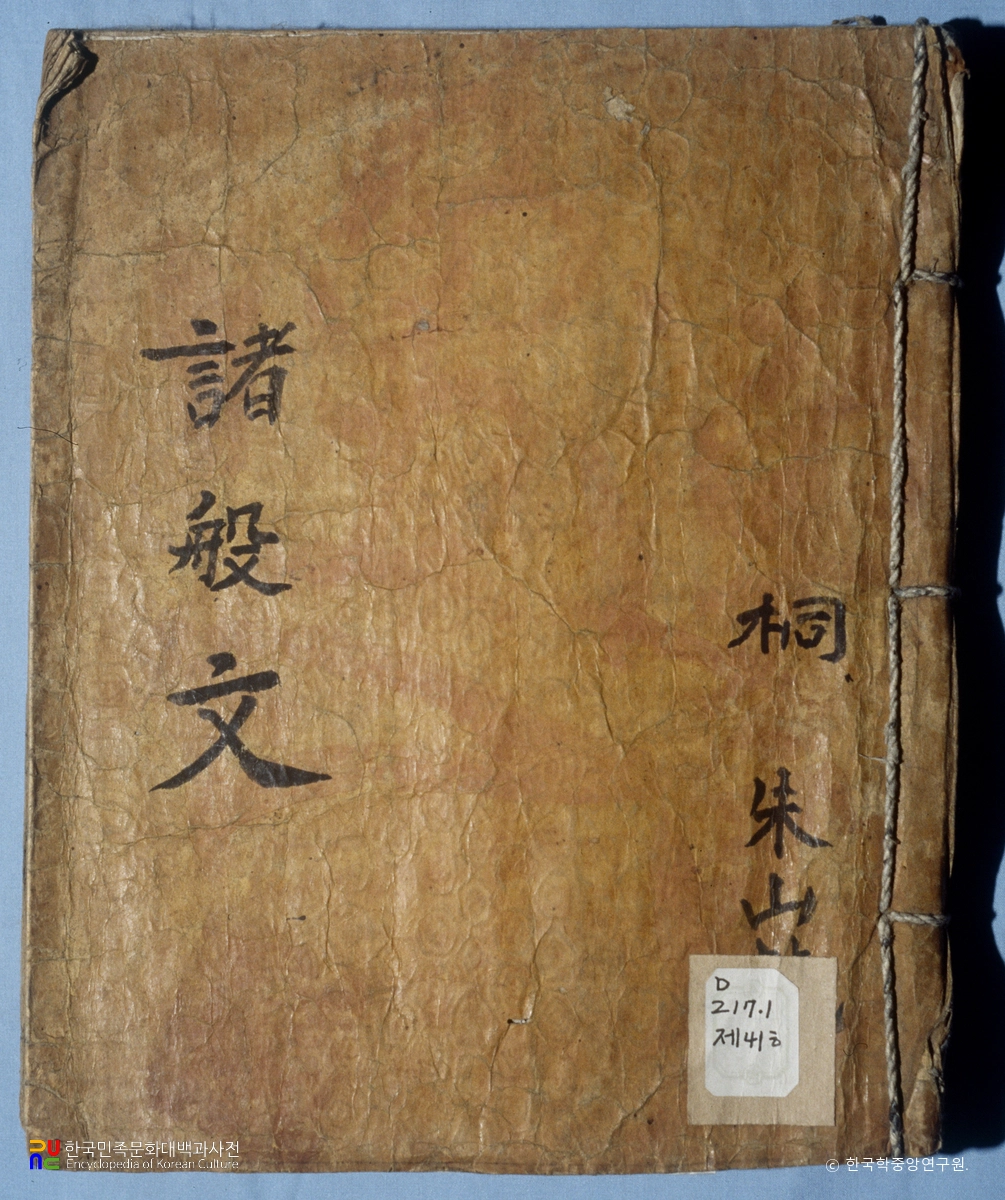 諸般文
桐
朱
D
217.1
제41ㅎ
한국민족문화대백과사전
Encyclopedia of Korean Culture
© 한국학중앙연구원.